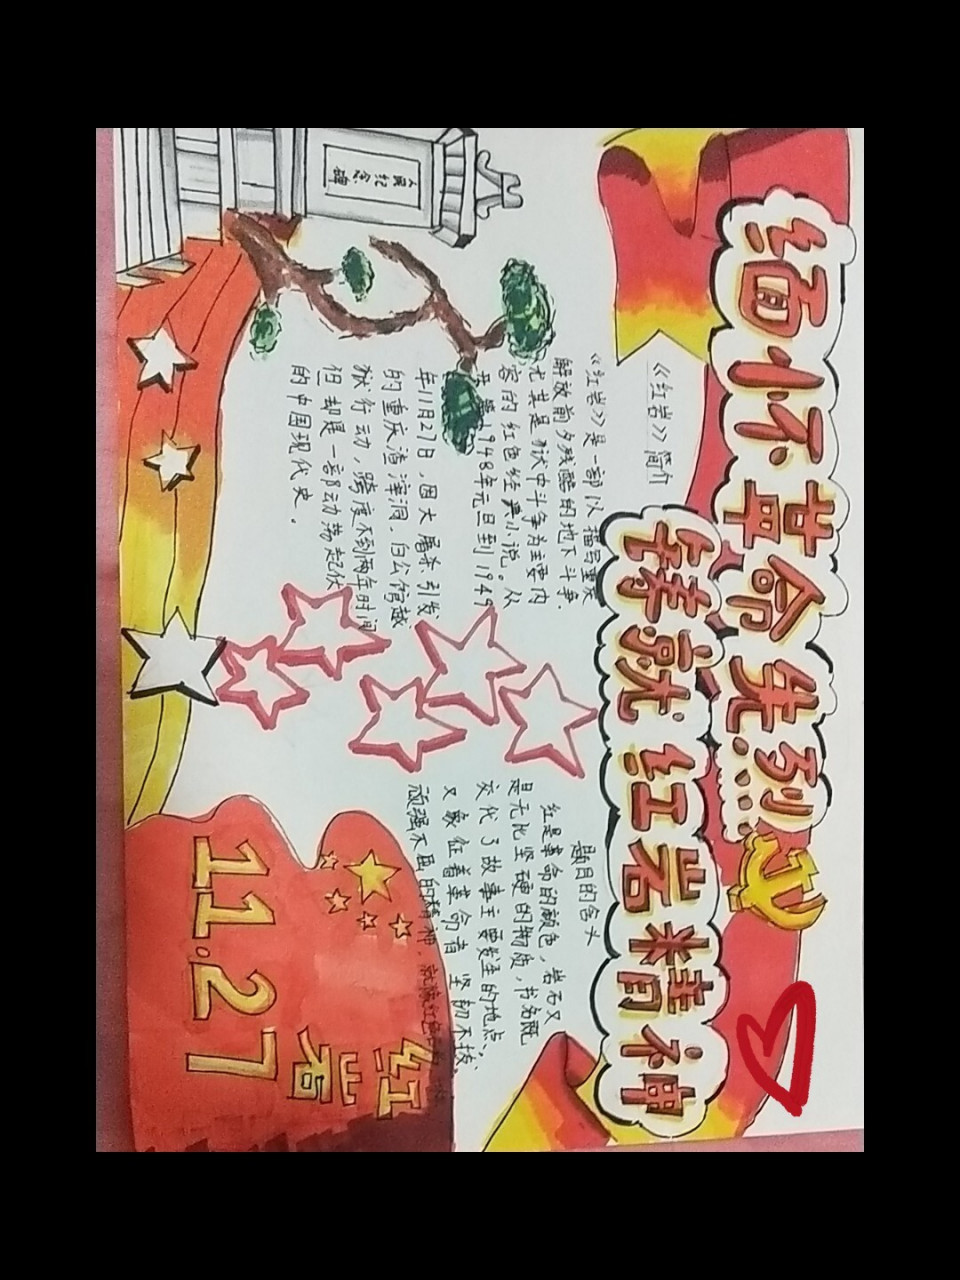 缅怀革命先烈…
铸就红岩精神
人民纪念碑
《红岩》简介
《红岩》是一部以描写重庆
解放前夕残酷的地下斗争,
尤其是狱中斗争为主要内
容的红色经典小说。从
1948年元旦到1949
年11月27日,因大屠杀引发
的重庆渣滓洞、白公馆越
狱行动,跨度不到两年时间
但却是一部动荡起伏
的中国现代史。
题目的含义
红是革命的颜色,岩石又
是无比坚硬的物质,书名既
交代了故事主要发生的地点,
又象征着革命者坚韧不拔、
顽强不屈的精神,
红岩
11.27